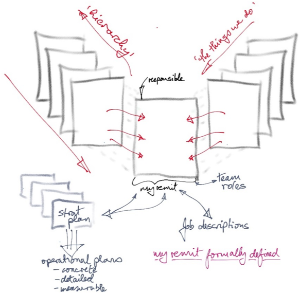 'hierarchy'
'the things we do'
responsible
my remit
team
roles
strat
plan
job descriptions
my remit formally defined
operational plans
- concrete
- detailed
- measurable